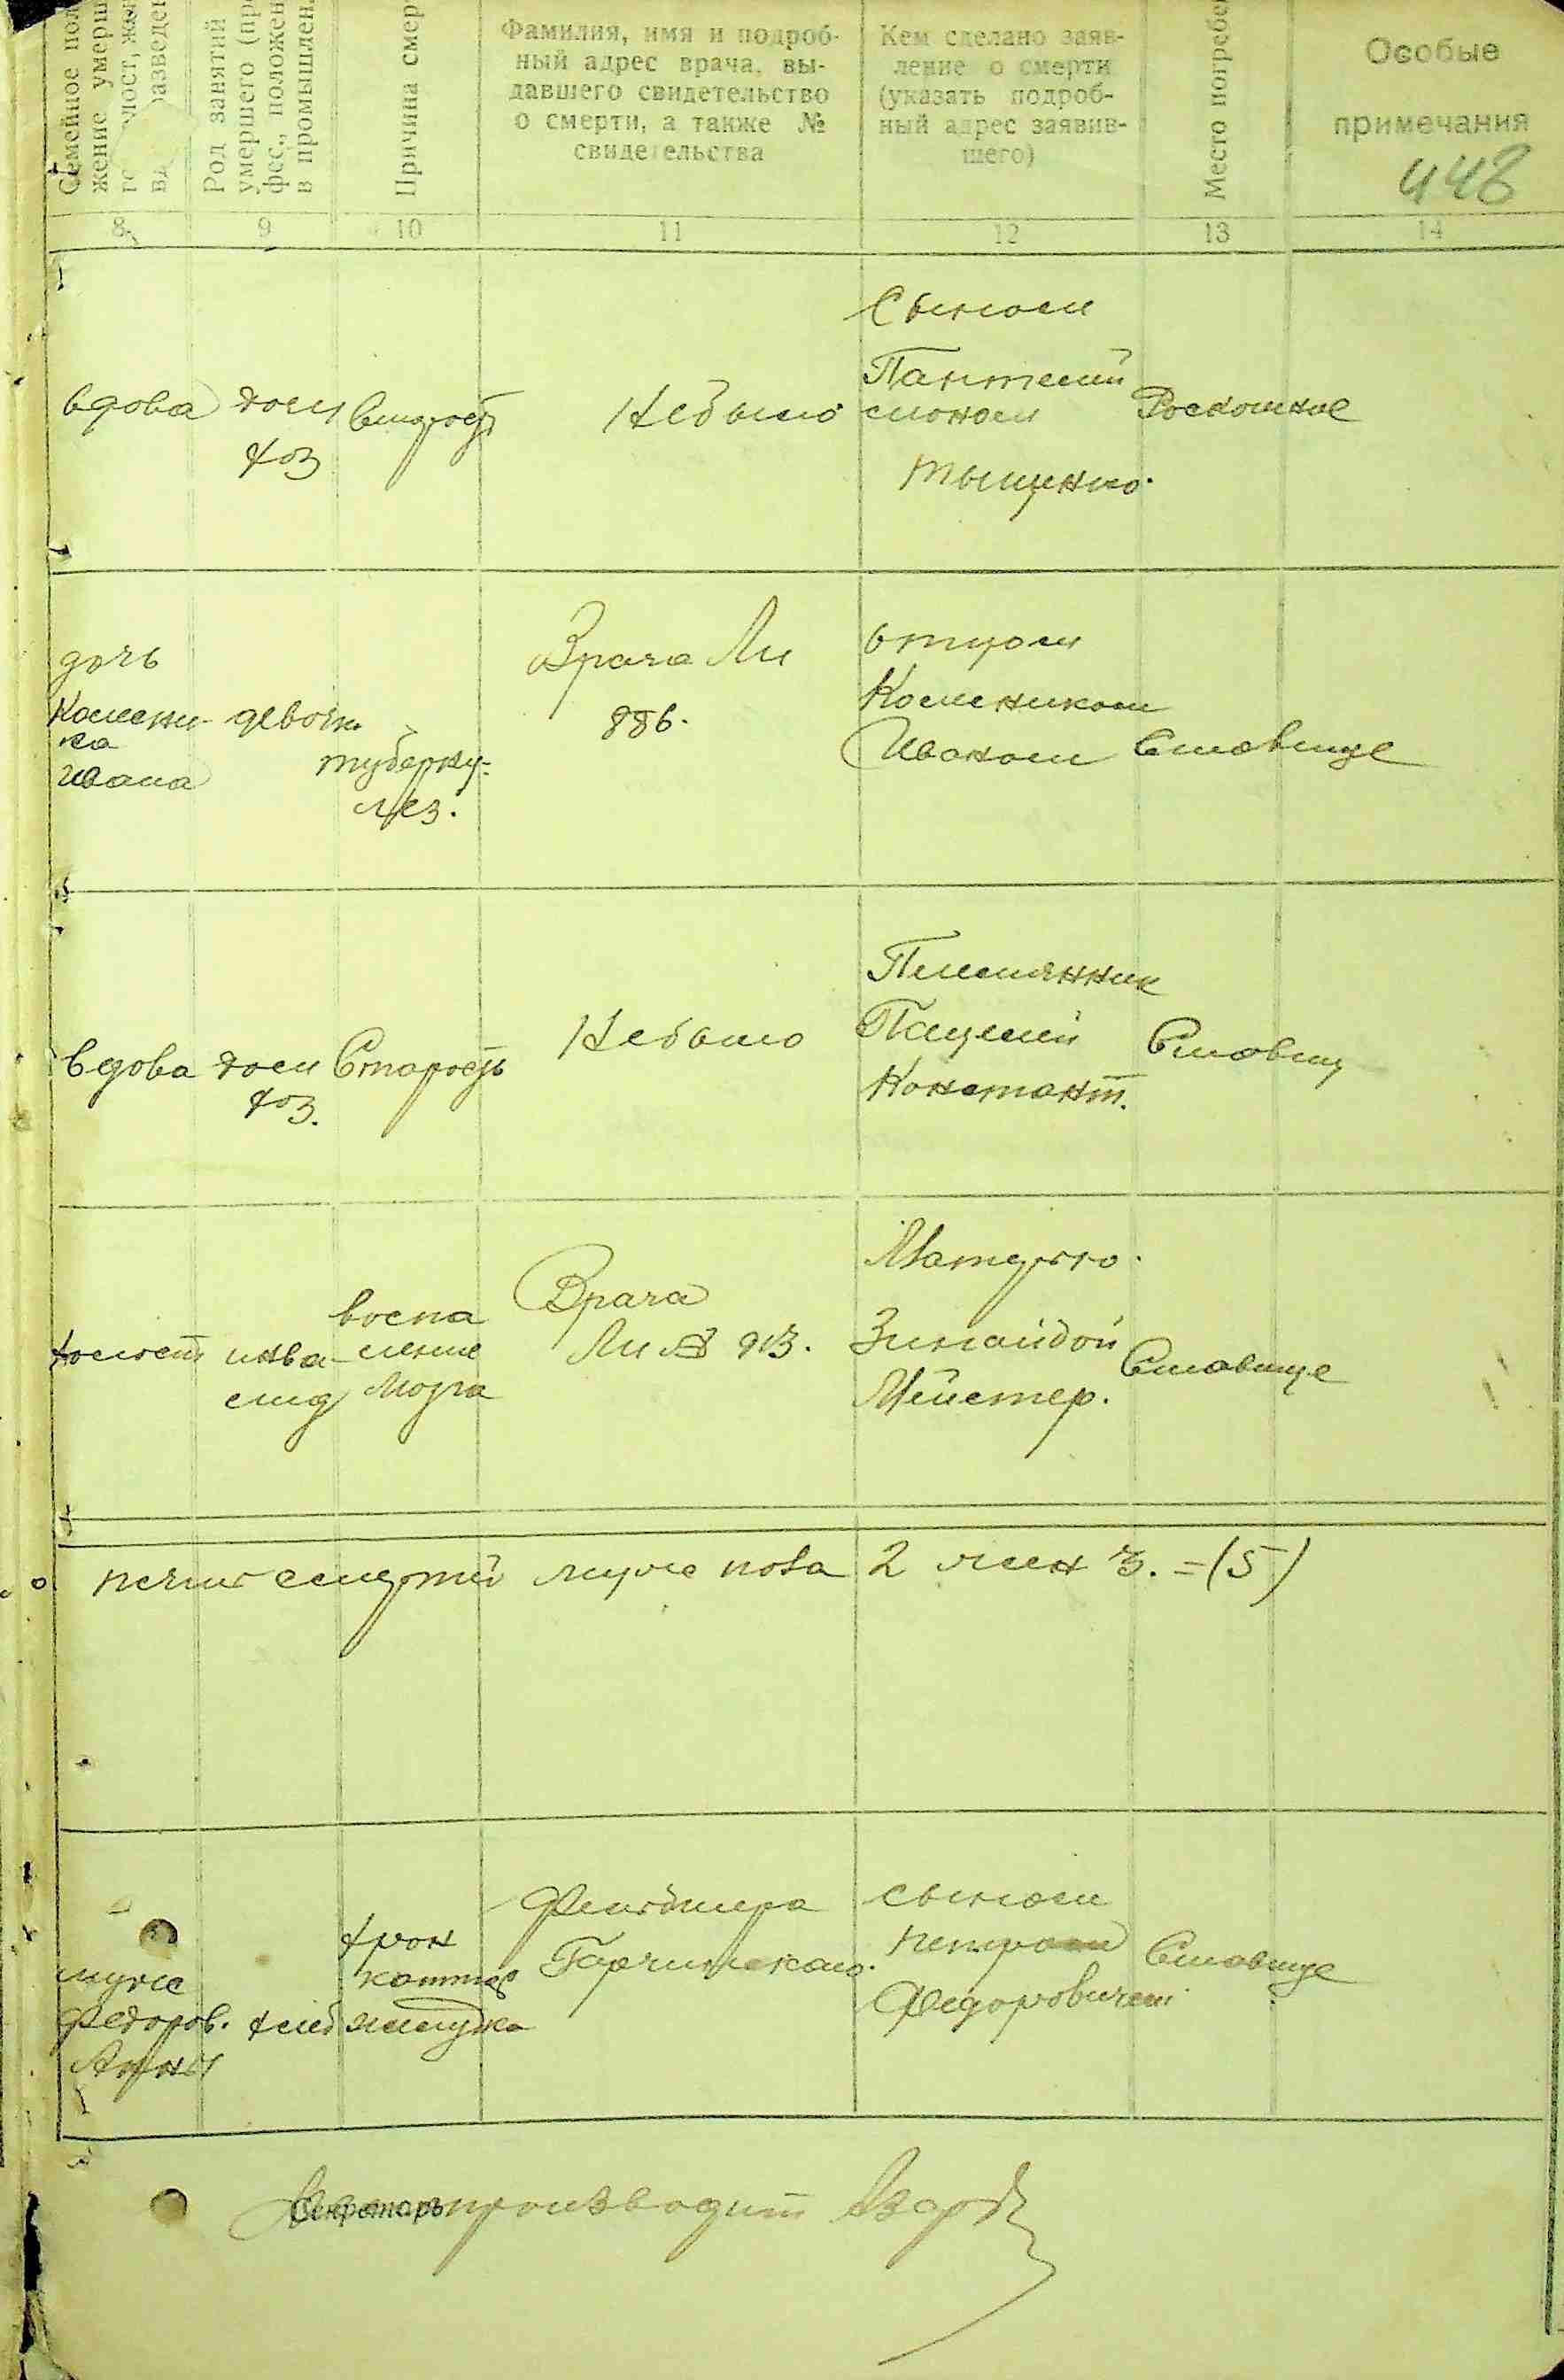 Семейное пол
жение умерш
вд разведен
Род занятий
умершего (пр
фес., положен
в промышлен.
Причина смер
Фамилия, имя и подроб-
ный адрес врача, вы-
давшего свидетельство
о смерти, а также №
свидетельства
Кем сделано заяв-
ление о смерти
(указать подроб-
ный адрес заявив-
шего)
Место погребе
Особые
примечания
448
8 9 10 11 12 13 14
вдова дом
хоз
Старость
Небыло
Сыном
Пантелий
моном
Тыщенко.
Роскошное
дочь
Колени-
ка
Ивана
девочк.
туберку-
лез.
Врача Ли
886.
Отцом
Колеником
Иваном
Ставище
вдова дом
хоз.
Старость
Небыло
Племянник
Константт.
Ставищ
холост инва-
лид
воспа
ление
мозга
Врача
Ли
Матерью.
Зинаидой
Мейстер.
Ставище
смертей 2 жен 3. = (5)
муже
Федоров.
Анны
хлеб
хрон
каттар
желудка
Фельдшера
сыном
Петром
Федоровичем
Ставище
Секретарь